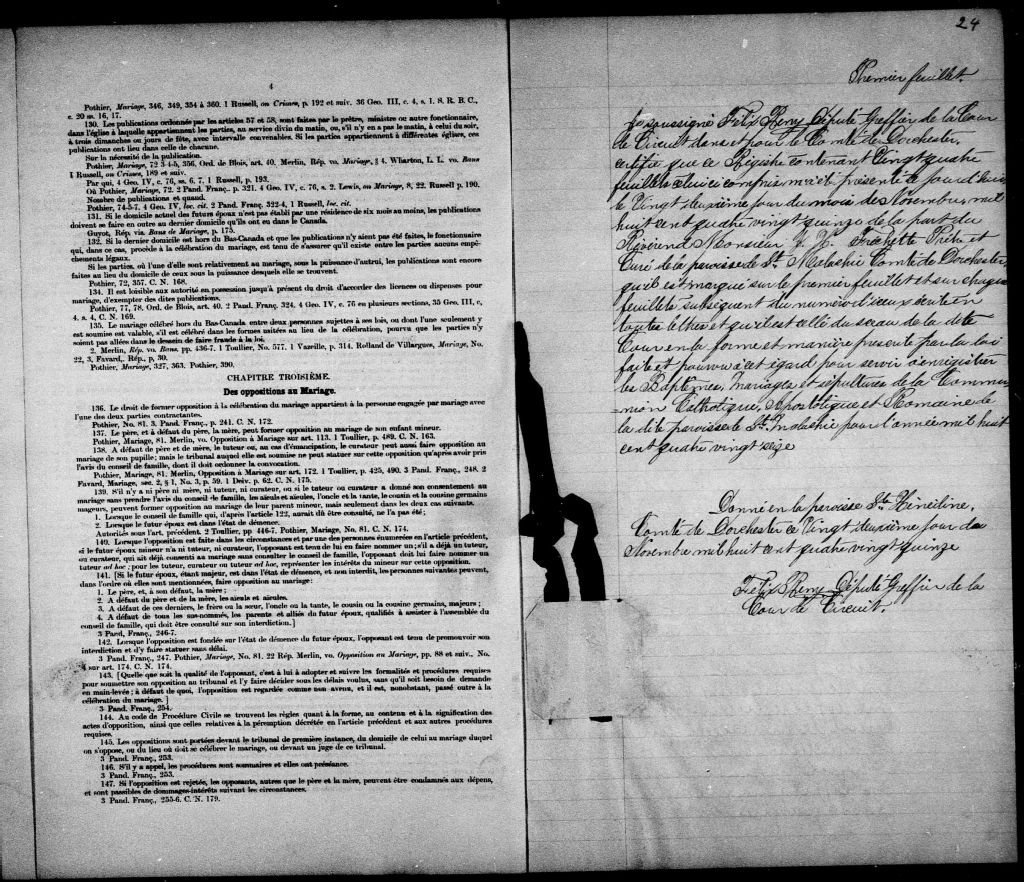 4
Pothier, Mariage, 346, 349, 354 à 360. 1 Russell, on Crimes, p. 192 et suiv. 36 Geo. III, c. 4, s. 1. S. R. B. C.,
c. 20 ss. 16, 17.
130. Les publications ordonnées par les articles 57 et 58, sont faites par le prêtre, ministre ou autre fonctionnaire,
dans l'église à laquelle appartiennent les parties, au service divin du matin, ou, s'il n'y en a pas le matin, à celui du soir,
à trois dimanches ou jours de fête, avec intervalle convenables. Si les parties appartiennent à différentes églises, ces
publications ont lieu dans celle de chacune.
Sur la nécessité de la publication.
Pothier, Mariage, 72 3-4-5, 356, Ord. de Blois, art. 40. Merlin, Rép. vo. Mariage, § 4. Wharton, L. L. vo. Bans
1 Russell, on Crimes, 189 et suiv.
Par qui, 4 Geo. IV, c. 76, ss. 6, 7. 1 Russell, p. 193.
Où Pothier, Mariage, 72. 2 Pand. Franç.. p. 321. 4 Geo. IV, c. 76, s. 2. Lewis, on Mariage, 8, 22. Russell p. 190.
Nombre de publications et quand.
Pothier, 74-5-7, 4 Geo. IV, loc. cit. 2 Pand. Franç. 322-4, 1 Russell, loc. cit.
131. Si le domicile actuel des futurs époux n'est pas établi par une résidence de six mois au moins, les publications
doivent se faire en outre au dernier domicile qu'ils ont eu dans le Canada.
Guyot, Rép. vis. Bans de Mariage, p. 175.
132. Si le dernier domicile est hors du Bas-Canada et que les publications n'y aient pas été faites, le fonctionnaire
qui, dans ce cas, procède à la célébration du mariage, est tenu de s'assurer qu'il existe entre les parties aucuns empê-
chements légaux.
Si les parties, où l'une d'elle sont relativement au mariage, sous la puissance-d'autrui, les publications sont encore
faites au lieu du domicile de ceux sous la puissance desquels elle se trouvent.
Pothier, 72, 357. C. N. 168.
134. Il est loisible aux autorité en possession jusqu'à présent du droit d'accorder des licences ou dispenses pour
mariage, d'exempter des dites publications.
Pothier, 77, 78. Ord. de Blois, art. 40. 2 Pand Franç. 324, 4 Geo. IV, c. 76 en plusieurs sections, 35 Geo. III, c,
4. s. 4, C. N. 169.
135. Le mariage célébré hors du Bas-Canada entre deux personnes sujettes à ses lois, ou dont l'une seulement y
est soumise est valable, s'il est célébré dans les formes usitées au lieu de la célébration, pourvu que les parties n'y
soient pas allées dans le dessein de faire fraude à la loi.
2. Merlin, Rép. vo. Bans, pp. 436-7, 1 Toullier, No. 577. 1 Vazeille, p. 314. Rolland de Villargues, Mariage, No.
22, 3, Favard,. Rép., p, 30.
Pothier, Mariage, 327, 363. Pothier, 390.
CHAPITRE TROISIÈME.
Des oppositions au Mariage.
136. Le droit de former opposition à la célébration du mariage appartient à la personne engagée par mariage avec
l'une des deux parties contractantes.
Pothier, No. 81. 3. Pand. Franç., p. 241. C. N. 172.
137. Le père, et à défaut du père, la mère, peut former opposition au mariage de son enfant mineur.
Pothier, Mariage, 81. Merlin, vo. Opposition à Mariage sur art. 113. 1 Toullier, p. 489. C. N. 163.
138. A défaut de père et de mère, le tuteur ou, en cas d'émancipation, le curateur peut aussi faire opposition au
mariage de son pupille; mais le tribunal auquel elle est soumise ne peut statuer sur cette opposition qu'après avoir pris
l'avis du conseil de famille, dont il doit ordonner la convocation.
Pothier, Mariage, 81. Merlin, Opposition à Mariage sur art. 172. 1 Toullier, p. 425, 490. 3 Pand. Franç., 248. 2
Favard, Mariage, sec. 2, § 1, No. 3, p. 59. 1 Delv. p. 62. C. N. 175.
139. S'il n'y a ni père ni mère, ni tuteur, ni curateur, ou si le tuteur ou curateur a donné son consentement au
mariage sans prendre l'avis du conseil de famille, les aïeuls et aïeules, l'oncle et la tante, le cousin et la cousine germains
majeurs, peuvent former opposition au mariage de leur parent mineur, mais seulement dans les deux cas suivants.
1. Lorsque le conseil de famille qui, d'après l'article 122, aurait dû être consulté, ne l'a pas été;
2. Lorsque le futur époux est dans l'état de démence.
Autorités sous l'art. précédent. 2 Toullier, pp. 446-7. Pothier, Mariage, No. 81. C. N. 174.
140. Lorsque l'opposition est faite dans les circonstances et par une des personnes énumerées en l'article précédent,
si le futur époux mineur n'a ni tuteur, ni curateur, l'opposant est tenu de lui en faire nommer un; s'il a déjà un tuteur,
ou curateur, qui ait déjà consenti au mariage sans consulter le conseil de famille, l'opposant doit lui faire nommer un
tuteur ad hoc; pour les tuteur, curateur ou tuteur ad hoc, représenter les intérêts du mineur sur cette opposition.
141. [Si le futur époux, étant majeur, est dans l'état de démence, et non interdit, les personnes suivantes peuvent,
dans l'ordre où elles sont mentionnées, faire opposition au mariage:
1. Le père, et, à son défaut, la mère;
2. A défaut du père et de la mère, les aïeuls et aïeules.
3. A défaut de ces derniers, le frère ou la sœur, l'oncle ou la tante, le cousin ou la cousine germains, majeurs;
4. A défaut de tous les sus-només, les parents et alliés du futur époux, qualifiés à assister à l'assemblée du
conseil de famille, qui doit être consulté sur son interdiction.]
3 Pand, Franç., 246-7.
142. Lorsque l'opposition est fondée sur l'état de démence du futur époux, l'opposant est tenu de promouvoir son
interdiction et d'y faire statuer sans délai.
3 Pand. Franç., 247. Pothier, Mariage, No. 81. 22 Rép. Merlin, vo. Opposition au Mariage, pp. 88 et suiv.. No.
4 sur art. 174. C. N. 174.
143. [Quelque soit la qualité de l'opposant, c'est à lui à adopter et suivre les formalités et procédures requises
pour soumettre son opposition au tribunal et l'y faire décider sous les délais voulus, sans qu'il soit besoin de demande
en main-levée; à défaut de quoi, l'opposition est regardée comme non avenu, et il est, nonobstant, passé outre à la
célébration du mariage.]
3 Pand. Franç., 254.
144. Au code de Procédure Civile se trouvent les règles quant à la forme, au contenu et à la signification des
actes d'opposition, ainsi que celles relatives à la péremption décrétée en l'article précédent et aux autres procédures
requises.
145. Les oppositions sont portées devant le tribunal de première instance, du domicile de celui au mariage duquel
on s'oppose, ou du lieu où doit se célébrer le mariage, ou devant un juge de ce tribunal.
3 Pand. Franç., 253.
146. S'il y a appel, les procédures sont sommaires et elles ont préséance.
3 Pand. Franç., 253.
147. Si l'opposition est rejetée, les opposants, autres que le père et la mère, peuvent être condamnés aux dépens,
et sont passibles de dommages-intérêts suivant les circonstances.
3 Pand. Franç., 255-6. C. N. 179.
24
Premier feuillet.
Je soussigné Felix Remy Député Greffier de la Cour
de Circuit dans et pour le Comté de Dorchester,
certifie que ce Régistre contenant Vingt quatre
feuillets celui ci compris m'a été présenté ce jour d'hui
le Vingt deuxième jour du mois de Novembre, mil
huit cent quatre vingt quinze de la part du
Révérend Monsieur J. H. Fréchette Prêtre et
Curé de la paroisse de St. Malachie Comté de Dorchester
qu'il est marqué sur le premier feuillet et sur chaque
feuillets subséquent du numéro d'iceux écrit en
toutes lettres et qu'il est cellé du sceau de la dite
Cour en la forme et manière prescrite par la loi
fait et pourvu à cet égard pour servir à enregistrer
les Baptêmes, Mariages et sépultures de la Commu
nion Catholique, Apostolique et Romaine de
la dite paroisse de St. Malachie pour l'année mil huit
cent quatre vingt seize
Donné en la paroisse Ste Hénédine,
Comté de Dorchester ce Vingt deuxième jour de
Novembre mil huit cent quatre vingt quinze
Felix Remy Député Greffier de la
Cour de Circuit.